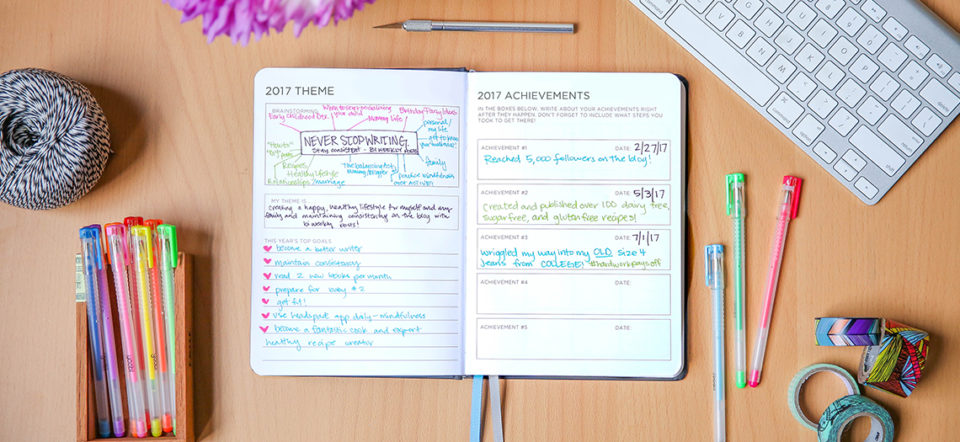 2017 THEME
BRAINSTORMING
Early childhood Dev.
when to say no, disciplining
your child
Mummy life
Birthday Party Ideas
personal/
my life
family
NEVER STOP WRITING.
Stay consistent - BI WEEKLY
"How to"
Recipes
Healthy lifestyle
Relationships/marriage
The balancing
practice mindfulness
MY THEME IS
creating a happy, healthy lifestyle for myself and my
family and maintaining consistency on the blog with
bi weekly
THIS YEAR'S TOP GOALS
become a better writer
maintain consistency
read 2 new books per month
prepare for baby #2
get fit!
use headspace app daily - mindfulness
become a fantastic cook and expert
healthy recipe creator
2017 ACHIEVEMENTS
IN THE BOXES BELOW, WRITE ABOUT YOUR ACHIEVEMENTS RIGHT
AFTER THEY HAPPEN. DON'T FORGET TO INCLUDE WHAT STEPS YOU
TOOK TO GET THERE!
ACHIEVEMENT #1 DATE: 2/27/17
Reached 5,000 followers on the blog!
ACHIEVEMENT #2 DATE: 5/3/17
created and published over 100 dairy free,
sugar free, and gluten free recipes!
ACHIEVEMENT #3 DATE: 7/1/17
wriggled my way into my OLD size 4
jeans from COLLEGE! #hardworkpaysoff
ACHIEVEMENT #4 DATE:
ACHIEVEMENT #5 DATE: